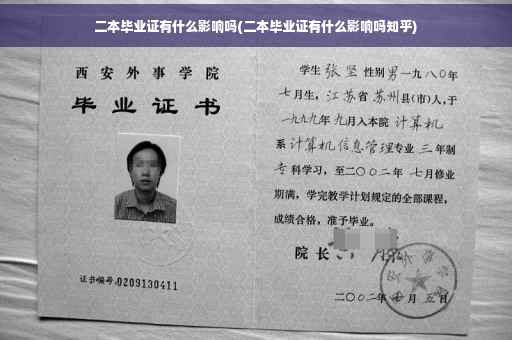 二本毕业证有什么影响吗(二本毕业证有什么影响吗知乎)
西安外事学院
毕业证书
证书编号:0209130411
学生张坚性别男一九八〇年
七月生，江苏省苏州县(市)人,于
一九九九年九月入本院计算机
系计算机信息管理专业三年制
专科学习，至二〇〇二年七月修业
期满，学完教学计划规定的全部课程，
成绩合格，准予毕业。
院长
二〇〇二年 月五日